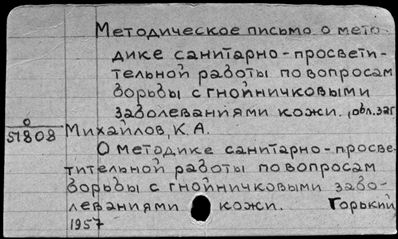 Методическое письмо о мето-
дике санитарно-просвети-
тельной работы по вопросам
борьбы с гнойничковыми
заболеваниями кожи. [обл.заг
0
51808
Михайлов, К.А.
О методике санитарно-просве-
тительной работы по вопросам
борьбы с гнойничковыми забо-
леваниями кожи. Горький
1957